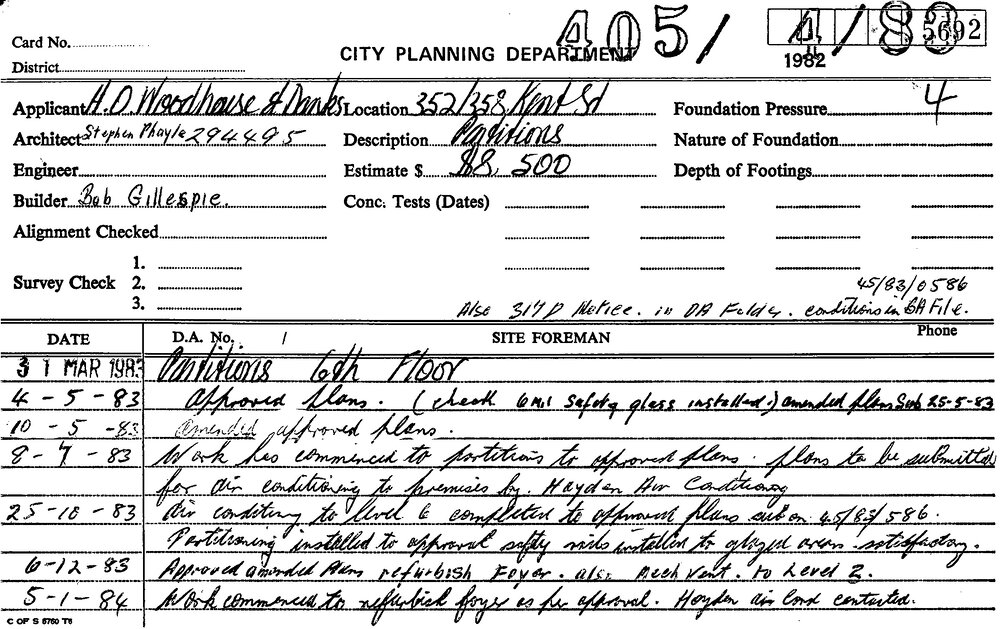 405/4/83
5692
Card No.
District
CITY PLANNING DEPARTMENT
1982
Applicant H.O. Woodhouse & Danks Location 352/358 Kent St Foundation Pressure 4
Architect Stephen Phayle 294495 Description Partitions Nature of Foundation
Engineer Estimate $ $8,500 Depth of Footings
Builder Bob Gillespie. Conc. Tests (Dates)
Alignment Checked
1.
Survey Check 2.
3.
45/83/0586
Also 317D Notice. in DA Folder. conditions in BA File.
DATE D.A. No. / SITE FOREMAN Phone
31 MAR 1983 Partitions 6th Floor
4-5-83 Approved plans. (check 6mil safety glass installed) amended plans Sub 25-5-83
10-5-83 Amended approved plans.
8-7-83 Work has commenced to partitions to approved plans. plans to be submitted
for air conditioning to premises by. Hayden Air Conditioning
25-10-83 Air conditiong to level 6 completed to approved plans sub on 45/83/586.
Partitioning installed to approval safety installed to glazed areas. satisfactory.
6-12-83 Approved amended Plans refurbish Foyer. also Mech Vent. to Level 2.
5-1-84 Work commenced to refurbish foyer as per approval. Hayden air Cond contacted.
C OF S 6760 T6